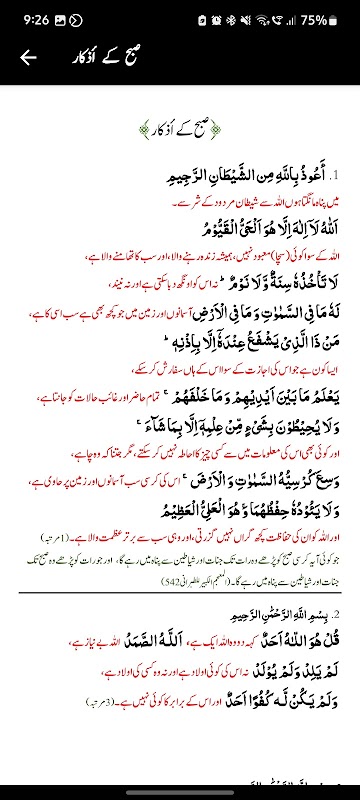 9:26 75%
صبح کے أذکار
﴿صبح کے أذکار﴾
1. أَعُوذُ بِاللَّهِ مِنَ الشَّيْطَانِ الرَّجِيمِ
میں پناہ مانگتا ہوں اللہ سے شیطان مردود کے شر سے۔
اَللّٰهُ لَآ اِلٰهَ اِلَّا هُوَ اَلْحَيُّ الْقَيُّوْمُ
اللہ کے سوا کوئی (سچا) معبود نہیں، ہمیشہ زندہ رہنے والا، اور سب کا تھامنے والا ہے،
لَا تَاْخُذُهٗ سِنَةٌ وَّلَا نَوْمٌ ۭ نہ اس کو اونگھ دباسکتی ہے اور نہ نیند،
لَهٗ مَا فِي السَّمٰوٰتِ وَمَا فِي الْاَرْضِ آسمانوں اور زمین میں جو کچھ بھی ہے سب اسی کا ہے،
مَنْ ذَا الَّذِيْ يَشْفَعُ عِنْدَهٗٓ اِلَّا بِاِذْنِهٖ ۭ
ایسا کون ہے جو اس کی اجازت کے سوا اس کے ہاں سفارش کر سکے،
يَعْلَمُ مَا بَيْنَ اَيْدِيْهِمْ وَمَا خَلْفَھُمْ ۚ تمام حاضر اور غائب حالات کو جانتا ہے،
وَلَا يُحِيْطُوْنَ بِشَيْءٍ مِّنْ عِلْمِهٖٓ اِلَّا بِمَا شَاۗءَ ۚ
اور کوئی بھی اس کی معلومات میں سے کسی چیز کا احاطہ نہیں کر سکتے، مگر جتنا کہ وہ چاہے،
وَسِعَ كُرْسِيُّهُ السَّمٰوٰتِ وَالْاَرْضَ ۚ اس کی کرسی سب آسمانوں اور زمین پر حاوی ہے،
وَلَا يَـــــُٔـــوْدُهٗ حِفْظُهُمَا وَھُوَ الْعَلِيُّ الْعَظِيْمُ
اور اللہ کو ان کی حفاظت کچھ گراں نہیں گزرتی، اور وہی سب سے برتر عظمت والا ہے۔ (1 مرتبہ)
جو کوئی آیہ کرسی صبح کو پڑھے وہ رات تک جنات اور شیاطین سے پناہ میں رہے گا، اور جو رات کو پڑھے وہ صبح تک
جنات اور شیاطین سے پناہ میں رہے گا۔ (المعجم الکبیر للطبرانی 542)
2. بِسْمِ اللَّهِ الرَّحْمٰنِ الرَّحِيمِ
قُلْ هُوَ اللّٰهُ اَحَدٌ کہہ دو وہ اللہ ایک ہے، اَللّٰهُ الصَّمَدُ اللہ بے نیاز ہے،
لَمْ يَلِدْ وَلَمْ يُوْلَدْ نہ اس کی کوئی اولاد ہے اور نہ وہ کسی کی اولاد ہے،
وَلَمْ يَكُنْ لَّهٗ كُفُوًا اَحَدٌ اور اس کے برابر کا کوئی نہیں ہے۔ (3 مرتبہ)